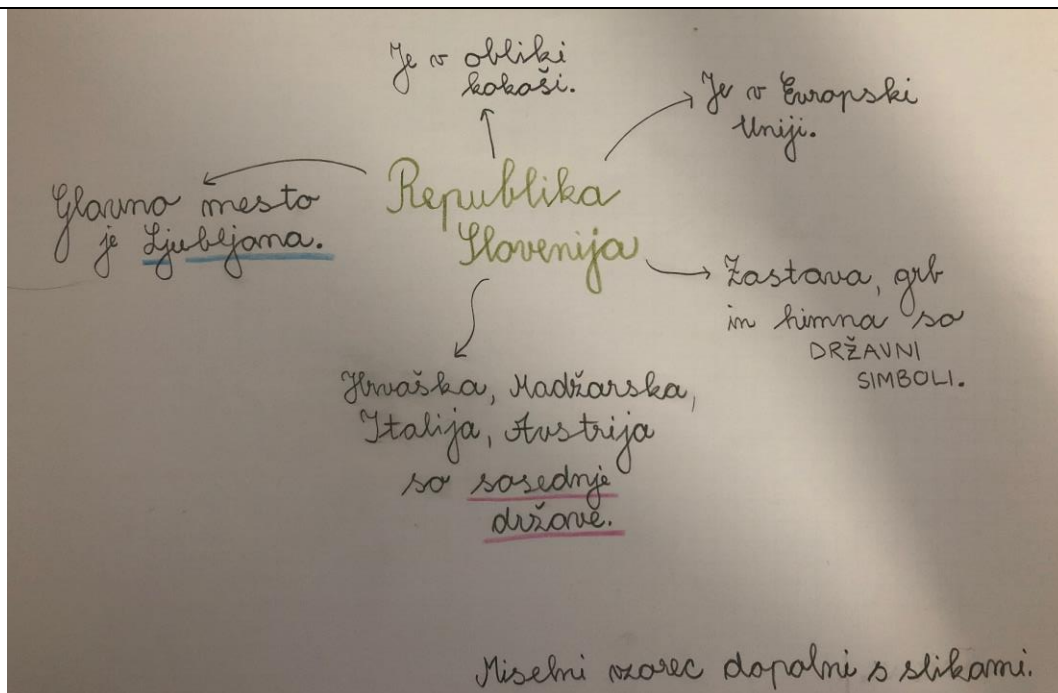 Je v obliki
kokoši.
Je v Evropski
Uniji.
Republika
Slovenija
Glavno mesto
je Ljubljana.
Zastava, grb
in himna so
DRŽAVNI
SIMBOLI.
Hrvaška, Madžarska,
Italija, Avstrija
so sosednje
države.
Miselni vzorec dopolni s slikami.